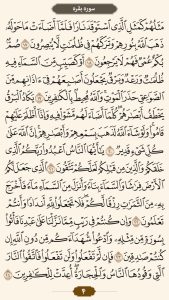 سوره بقره
مَثَلُهُمْ كَمَثَلِ الَّذِي اسْتَوْقَدَ نَارًا فَلَمَّا أَضَاءَتْ مَا حَوْلَهُ
ذَهَبَ اللَّهُ بِنُورِهِمْ وَتَرَكَهُمْ فِي ظُلُمَاتٍ لَا يُبْصِرُونَ ﴿١٧﴾ صُمٌّ
بُكْمٌ عُمْيٌ فَهُمْ لَا يَرْجِعُونَ ﴿١٨﴾ أَوْ كَصَيِّبٍ مِنَ السَّمَاءِ فِيهِ
ظُلُمَاتٌ وَرَعْدٌ وَبَرْقٌ يَجْعَلُونَ أَصَابِعَهُمْ فِي آذَانِهِمْ مِنَ
الصَّوَاعِقِ حَذَرَ الْمَوْتِ وَاللَّهُ مُحِيطٌ بِالْكَافِرِينَ ﴿١٩﴾ يَكَادُ الْبَرْقُ
يَخْطَفُ أَبْصَارَهُمْ كُلَّمَا أَضَاءَ لَهُمْ مَشَوْا فِيهِ وَإِذَا أَظْلَمَ عَلَيْهِمْ
قَامُوا وَلَوْ شَاءَ اللَّهُ لَذَهَبَ بِسَمْعِهِمْ وَأَبْصَارِهِمْ إِنَّ اللَّهَ عَلَى
كُلِّ شَيْءٍ قَدِيرٌ ﴿٢٠﴾ يَا أَيُّهَا النَّاسُ اعْبُدُوا رَبَّكُمُ الَّذِي
خَلَقَكُمْ وَالَّذِينَ مِنْ قَبْلِكُمْ لَعَلَّكُمْ تَتَّقُونَ ﴿٢١﴾ الَّذِي جَعَلَ لَكُمُ
الْأَرْضَ فِرَاشًا وَالسَّمَاءَ بِنَاءً وَأَنْزَلَ مِنَ السَّمَاءِ مَاءً فَأَخْرَجَ
بِهِ مِنَ الثَّمَرَاتِ رِزْقًا لَكُمْ فَلَا تَجْعَلُوا لِلَّهِ أَنْدَادًا وَأَنْتُمْ
تَعْلَمُونَ ﴿٢٢﴾ وَإِنْ كُنْتُمْ فِي رَيْبٍ مِمَّا نَزَّلْنَا عَلَى عَبْدِنَا فَأْتُوا
بِسُورَةٍ مِنْ مِثْلِهِ وَادْعُوا شُهَدَاءَكُمْ مِنْ دُونِ اللَّهِ إِنْ
كُنْتُمْ صَادِقِينَ ﴿٢٣﴾ فَإِنْ لَمْ تَفْعَلُوا وَلَنْ تَفْعَلُوا فَاتَّقُوا النَّارَ
الَّتِي وَقُودُهَا النَّاسُ وَالْحِجَارَةُ أُعِدَّتْ لِلْكَافِرِينَ ﴿٢٤﴾